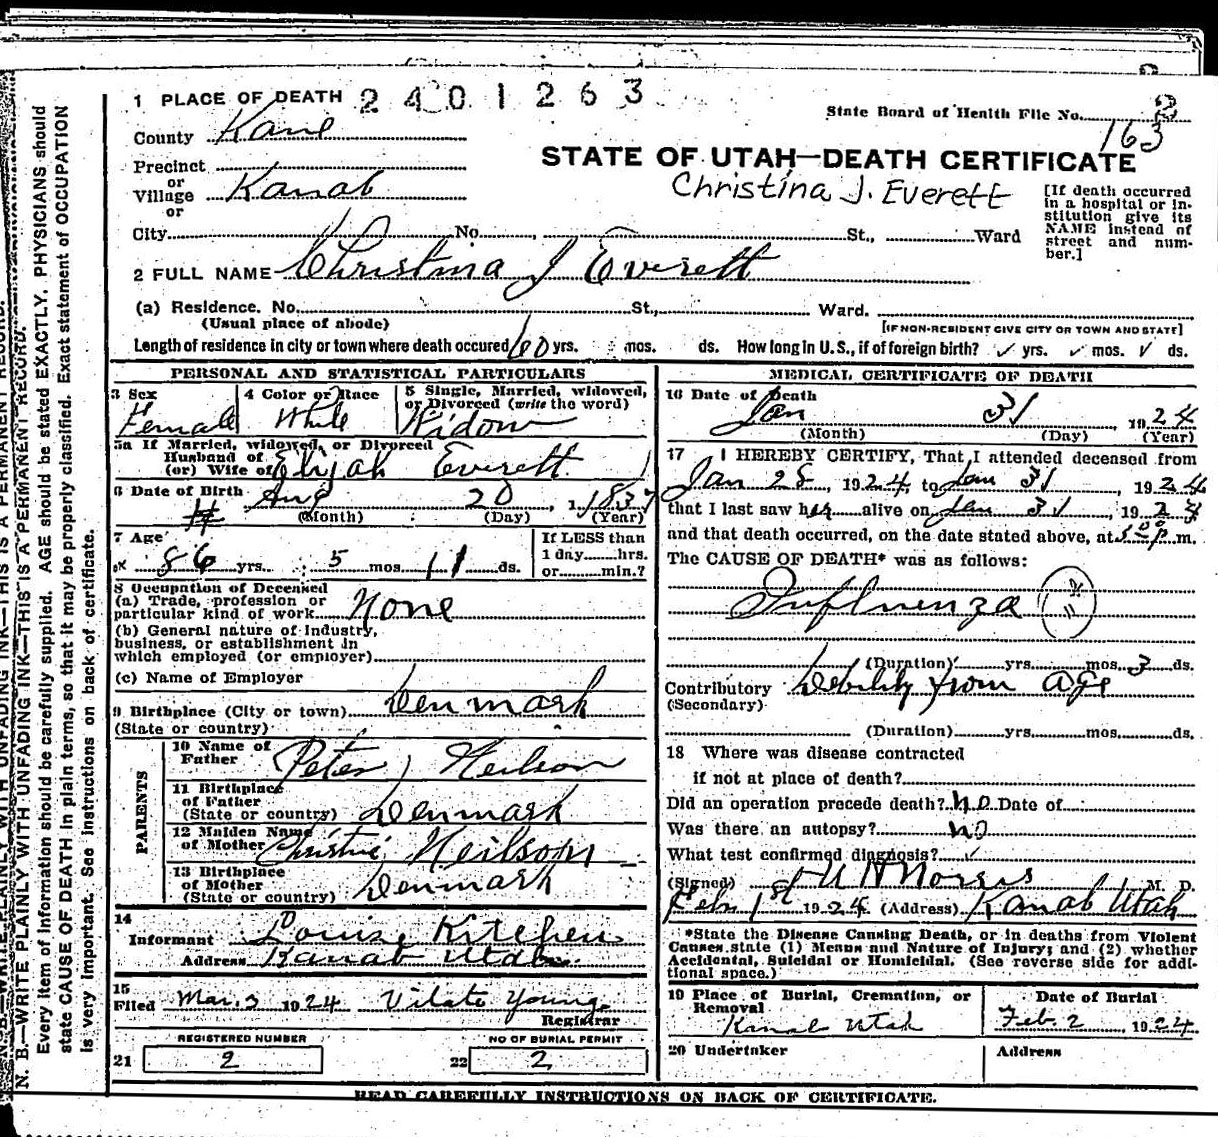 1 PLACE OF DEATH 2401263
State Board of Health File No. 2
163
County Kane
STATE OF UTAH—DEATH CERTIFICATE
Precinct
or
Village Kanab
or
Christina J. Everett
[If death occurred in a hospital or institution give its NAME instead of street and number.]
City No. St., Ward
2 FULL NAME Christina J Everett
(a) Residence. No. St., Ward.
(Usual place of abode)
[IF NON-RESIDENT GIVE CITY OR TOWN AND STATE]
Length of residence in city or town where death occured 60 yrs. mos. ds. How long in U. S., if of foreign birth? ✓ yrs. ✓ mos. ✓ ds.
PERSONAL AND STATISTICAL PARTICULARS
3 Sex
Female
4 Color or Race
White
5 Single, Married, widowed,
or Divorced (write the word)
Widow
5a If Married, widowed, or Divorced
Husband of
(or) Wife of Elijah Everett
6 Date of Birth Aug 20, 1837
(Month) (Day) (Year)
7 Age
86 yrs. 5 mos. 11 ds.
If LESS than
1 day hrs.
or min.?
8 Occupation of Deceased
(a) Trade, profession or
particular kind of work None
(b) General nature of Industry,
business, or establishment in
which employed (or employer)
(c) Name of Employer
9 Birthplace (City or town) Denmark
(State or country)
PARENTS
10 Name of
Father Peter Neilson
11 Birthplace
of Father
(State or country) Denmark
12 Maiden Name
of Mother Christine Neilson
13 Birthplace
of Mother
(State or country) Denmark
14
Informant Louise Kitchen
Address Kanab Utah
15
Filed Mar. 3 1924 Vilate Young
Registrar
REGISTERED NUMBER
21 2
NO OF BURIAL PERMIT
22 2
MEDICAL CERTIFICATE OF DEATH
16 Date of Death
Jan 31 1924
(Month) (Day) (Year)
17 I HEREBY CERTIFY, That I attended deceased from
Jan 28, 1924, to Jan 31, 1924
that I last saw her alive on Jan 31, 1924
and that death occurred, on the date stated above, at 5:00 p. m.
The CAUSE OF DEATH* was as follows:
Influenza 11
(Duration) yrs. mos. 3 ds.
Contributory Debility from age
(Secondary)
(Duration) yrs. mos. ds.
18 Where was disease contracted
if not at place of death?
Did an operation precede death? No Date of
Was there an autopsy? No
What test confirmed diagnosis? ✓
(Signed) Norris M. D.
Feb 1st 1924 (Address) Kanab Utah
*State the Disease Causing Death, or in deaths from Violent
Causes state (1) Means and Nature of Injury; and (2) whether
Accidental, Suicidal or Homicidal. (See reverse side for addi-
tional space.)
19 Place of Burial, Cremation, or
Removal
Kanab Utah
Date of Burial
Feb. 2, 1924
20 Undertaker
Address
READ CAREFULLY INSTRUCTIONS ON BACK OF CERTIFICATE.
N. B.—WRITE PLAINLY WITH UNFADING INK—THIS IS A PERMANENT RECORD.
Every item of information should be carefully supplied. AGE should be stated EXACTLY. PHYSICIANS should
state CAUSE OF DEATH in plain terms, so that it may be properly classified. Exact statement of OCCUPATION
is very important. See instructions on back of certificate.